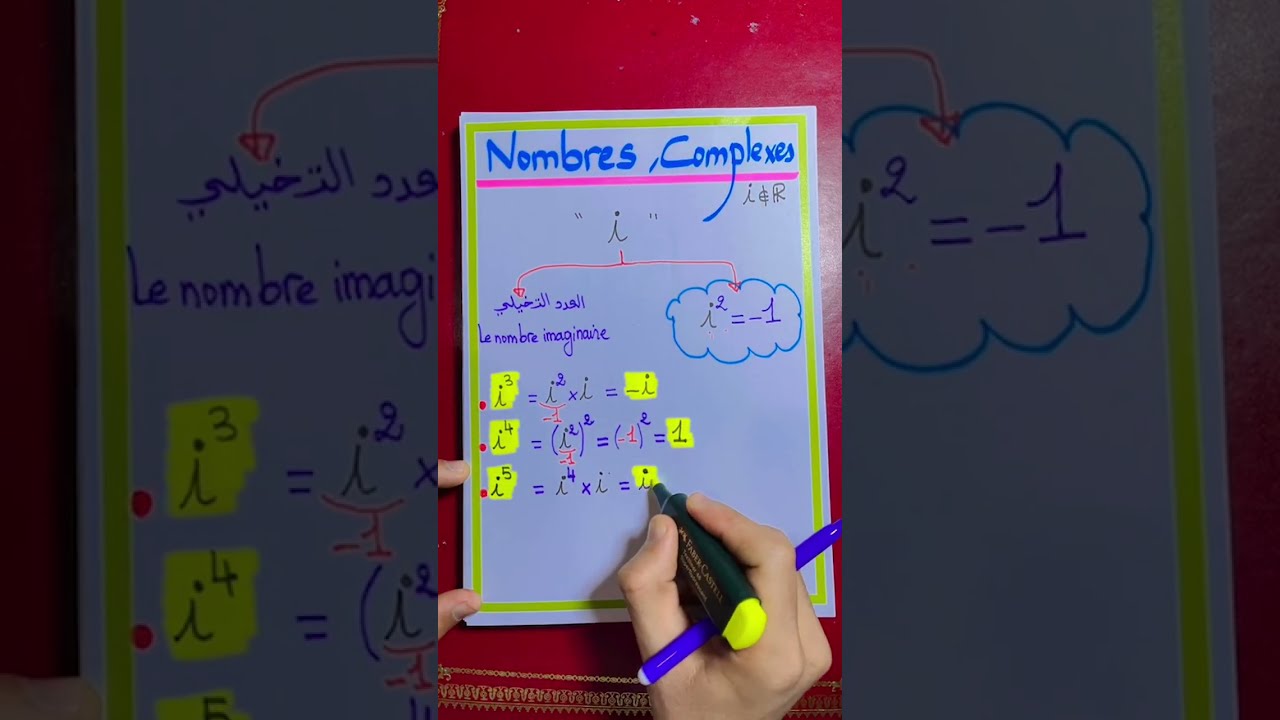 Nombres Complexes
i ∉ ℝ
" i "
العدد التخيلي
Le nombre imaginaire
i² = -1
i³ = i² × i = -i
-1
i⁴ = (i²)² = (-1)² = 1
-1
i⁵ = i⁴ × i = i
FABER-CASTELL